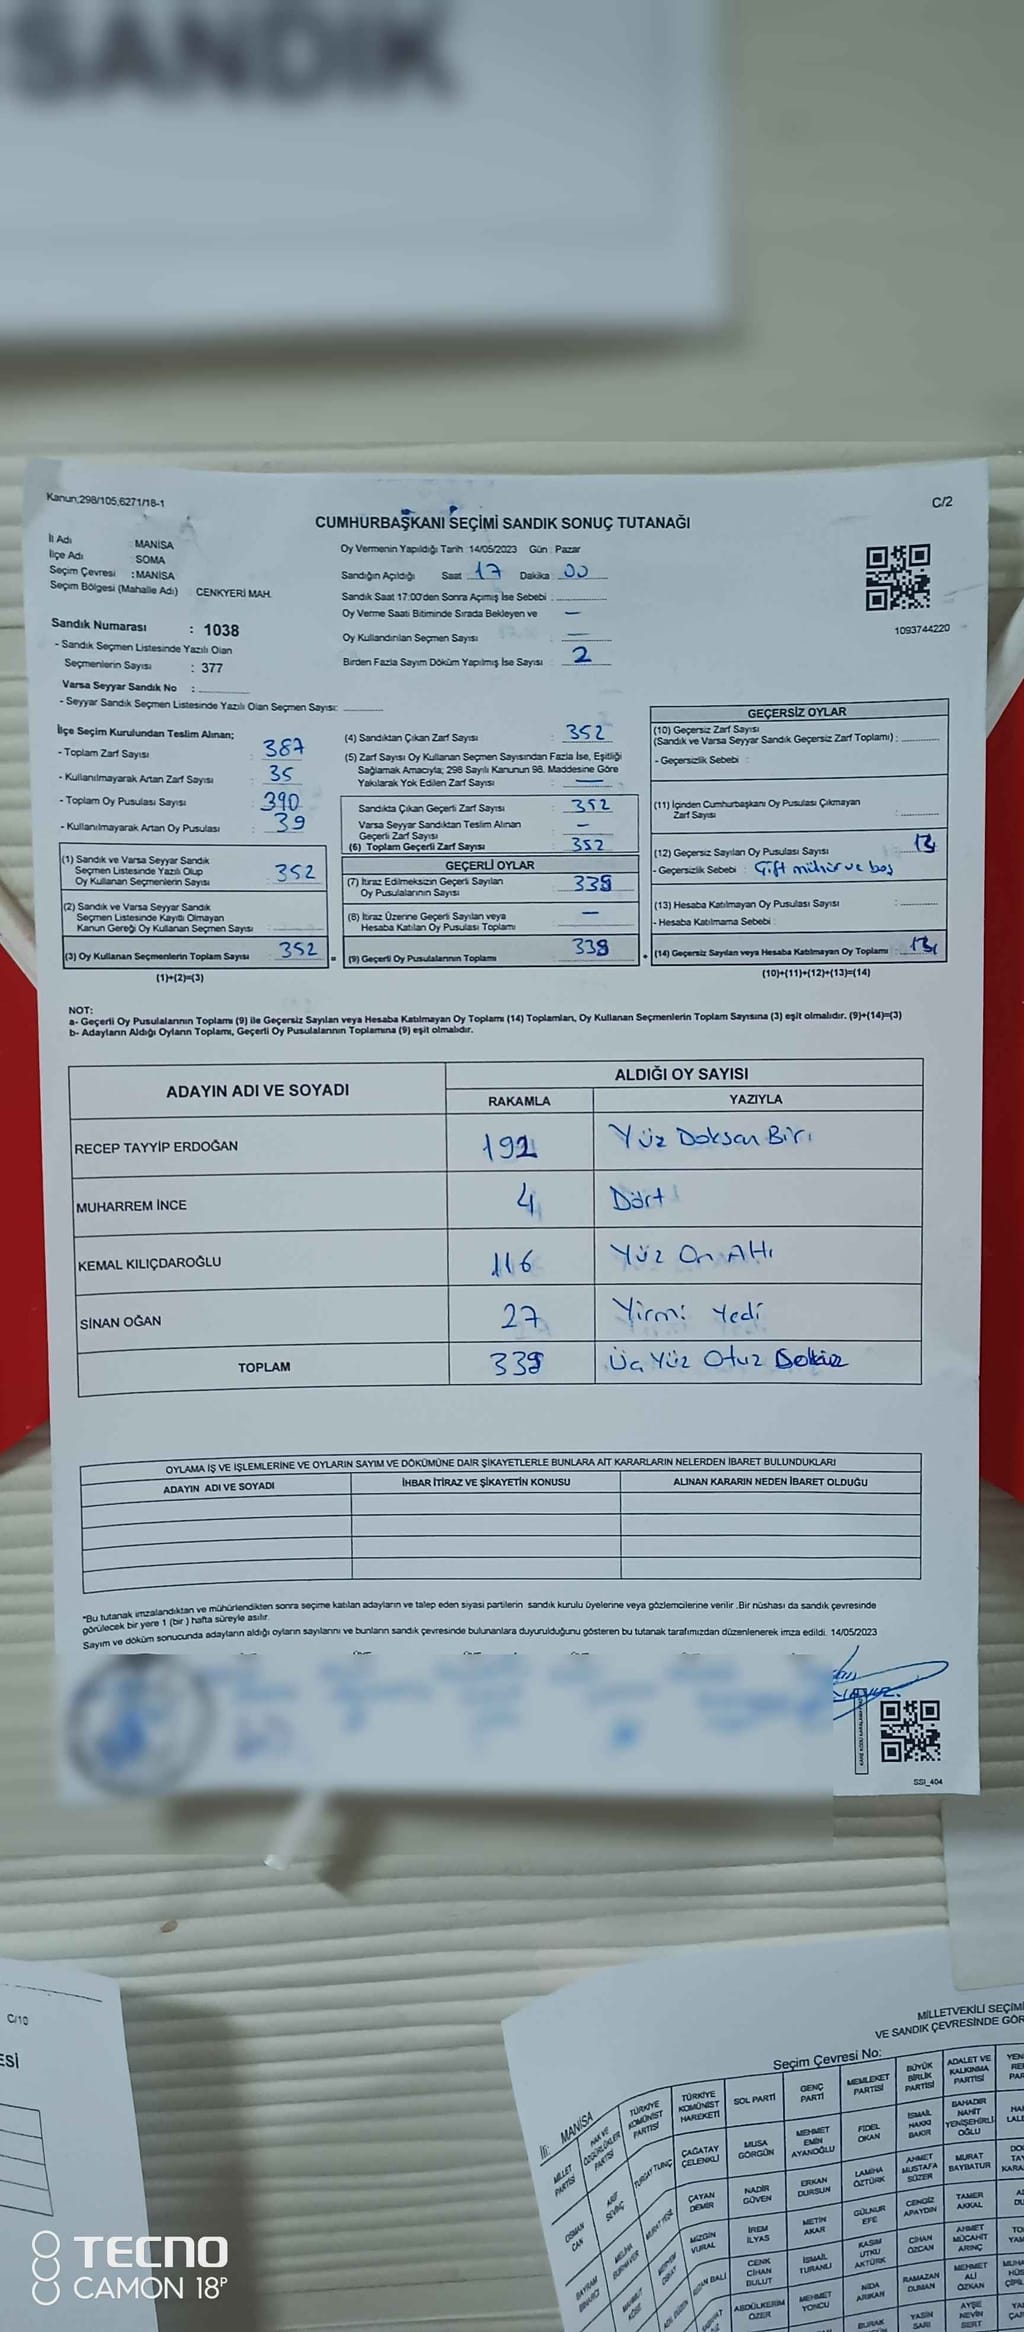 SANDIK
Kanun,298/105,6271/18-1
C/2
CUMHURBAŞKANI SEÇİMİ SANDIK SONUÇ TUTANAĞI
İl Adı : MANİSA
İlçe Adı : SOMA
Seçim Çevresi : MANİSA
Seçim Bölgesi (Mahalle Adı) CENKYERİ MAH.
Oy Vermenin Yapıldığı Tarih 14/05/2023 Gün : Pazar
Sandığın Açıldığı Saat 17 Dakika 00
Sandık Saat 17:00'den Sonra Açımış İse Sebebi :
Oy Verme Saati Bitiminde Sırada Bekleyen ve —
Oy Kullandırılan Seçmen Sayısı —
Birden Fazla Sayım Döküm Yapılmış İse Sayısı 2
1093744220
Sandık Numarası : 1038
- Sandık Seçmen Listesinde Yazılı Olan
Seçmenlerin Sayısı : 377
Varsa Seyyar Sandık No :
- Seyyar Sandık Seçmen Listesinde Yazılı Olan Seçmen Sayısı:
İlçe Seçim Kurulundan Teslim Alınan;
- Toplam Zarf Sayısı : 387
- Kullanılmayarak Artan Zarf Sayısı : 35
- Toplam Oy Pusulası Sayısı : 390
- Kullanılmayarak Artan Oy Pusulası : 39
(1) Sandık ve Varsa Seyyar Sandık
Seçmen Listesinde Yazılı Olup
Oy Kullanan Seçmenlerin Sayısı 352
(2) Sandık ve Varsa Seyyar Sandık
Seçmen Listesinde Kayıtlı Olmayan
Kanun Gereği Oy Kullanan Seçmen Sayısı
(3) Oy Kullanan Seçmenlerin Toplam Sayısı 352
(1)+(2)=(3)
(4) Sandıktan Çıkan Zarf Sayısı : 352
(5) Zarf Sayısı Oy Kullanan Seçmen Sayısından Fazla İse, Eşitliği
Sağlamak Amacıyla; 298 Sayılı Kanunun 98. Maddesine Göre
Yakılarak Yok Edilen Zarf Sayısı : —
Sandıkta Çıkan Geçerli Zarf Sayısı : 352
Varsa Seyyar Sandıktan Teslim Alınan
Geçerli Zarf Sayısı : —
(6) Toplam Geçerli Zarf Sayısı : 352
GEÇERLİ OYLAR
(7) İtiraz Edilmeksizin Geçerli Sayılan
Oy Pusulalarının Sayısı : 339
(8) İtiraz Üzerine Geçerli Sayılan veya
Hesaba Katılan Oy Pusulası Toplamı : —
= (9) Geçerli Oy Pusulalarının Toplamı 339
GEÇERSİZ OYLAR
(10) Geçersiz Zarf Sayısı
(Sandık ve Varsa Seyyar Sandık Geçersiz Zarf Toplamı) :
- Geçersizlik Sebebi :
(11) İçinden Cumhurbaşkanı Oy Pusulası Çıkmayan
Zarf Sayısı :
(12) Geçersiz Sayılan Oy Pusulası Sayısı 13
- Geçersizlik Sebebi : Çift mühür ve boş
(13) Hesaba Katılmayan Oy Pusulası Sayısı :
- Hesaba Katılmama Sebebi :
+ (14) Geçersiz Sayılan veya Hesaba Katılmayan Oy Toplamı : 13
(10)+(11)+(12)+(13)=(14)
NOT:
a- Geçerli Oy Pusulalarının Toplamı (9) ile Geçersiz Sayılan veya Hesaba Katılmayan Oy Toplamı (14) Toplamları, Oy Kullanan Seçmenlerin Toplam Sayısına (3) eşit olmalıdır. (9)+(14)=(3)
b- Adayların Aldığı Oyların Toplamı, Geçerli Oy Pusulalarının Toplamına (9) eşit olmalıdır.
ADAYIN ADI VE SOYADI
ALDIĞI OY SAYISI
RAKAMLA YAZIYLA
RECEP TAYYİP ERDOĞAN 192 Yüz Doksan Biri
MUHARREM İNCE 4 Dört
KEMAL KILIÇDAROĞLU 116 Yüz On Altı
SİNAN OĞAN 27 Yirmi Yedi
TOPLAM 339 Üç Yüz Otuz Dokuz
OYLAMA İŞ VE İŞLEMLERİNE VE OYLARIN SAYIM VE DÖKÜMÜNE DAİR ŞİKAYETLERLE BUNLARA AİT KARARLARIN NELERDEN İBARET BULUNDUKLARI
ADAYIN ADI VE SOYADI İHBAR İTİRAZ VE ŞİKAYETİN KONUSU ALINAN KARARIN NEDEN İBARET OLDUĞU
*Bu tutanak imzalandıktan ve mühürlendikten sonra seçime katılan adayların ve talep eden siyasi partilerin sandık kurulu üyelerine veya gözlemcilerine verilir .Bir nüshası da sandık çevresinde
görülecek bir yere 1 (bir ) hafta süreyle asılır.
Sayım ve döküm sonucunda adayların aldığı oyların sayılarını ve bunların sandık çevresinde bulunanlara duyurulduğunu gösteren bu tutanak tarafımızdan düzenlenerek imza edildi. 14/05/2023
SSI_404
C/10
ESİ
MİLLETVEKİLİ SEÇİMİ
VE SANDIK ÇEVRESİNDE GÖR
Seçim Çevresi No:
İli: MANİSA
MİLLET PARTİSİ
HAK VE ÖZGÜRLÜKLER PARTİSİ
TÜRKİYE KOMÜNİST PARTİSİ
TÜRKİYE KOMÜNİST HAREKETİ
SOL PARTİ
GENÇ PARTİ
MEMLEKET PARTİSİ
BÜYÜK BİRLİK PARTİSİ
ADALET VE KALKINMA PARTİSİ
OSMAN CAN
TURGAY TUNÇ
ÇAĞATAY ÇELENKLİ
MUSA GÖRGÜN
MEHMET EMİN AYANOĞLU
FİDEL OKAN
İSMAİL HAKKI BAKIR
BAHADIR NAHİT YENİŞEHİRLİOĞLU
ÇAYAN DEMİR
NADİR GÜVEN
ERKAN DURSUN
LAMİHA ÖZTÜRK
AHMET MUSTAFA SÜZER
MURAT BAYBATUR
MİZGİN VURAL
İREM İLYAS
METİN AKAR
GÜLNUR EFE
CENGİZ APAYDIN
TAMER AKKAL
CENK CİHAN BULUT
İSMAİL TURANLI
KASIM UTKU AKTÜRK
CİHAN ÖZCAN
AHMET MÜCAHİT ARINÇ
ABDÜLKERİM ÖZER
MEHMET YONCU
NİDA ARIKAN
RAMAZAN DUMAN
MEHMET ALİ ÖZKAN
BURAK
YASİN SARI
AYŞE NEVİN SERT
TECNO
CAMON 18P